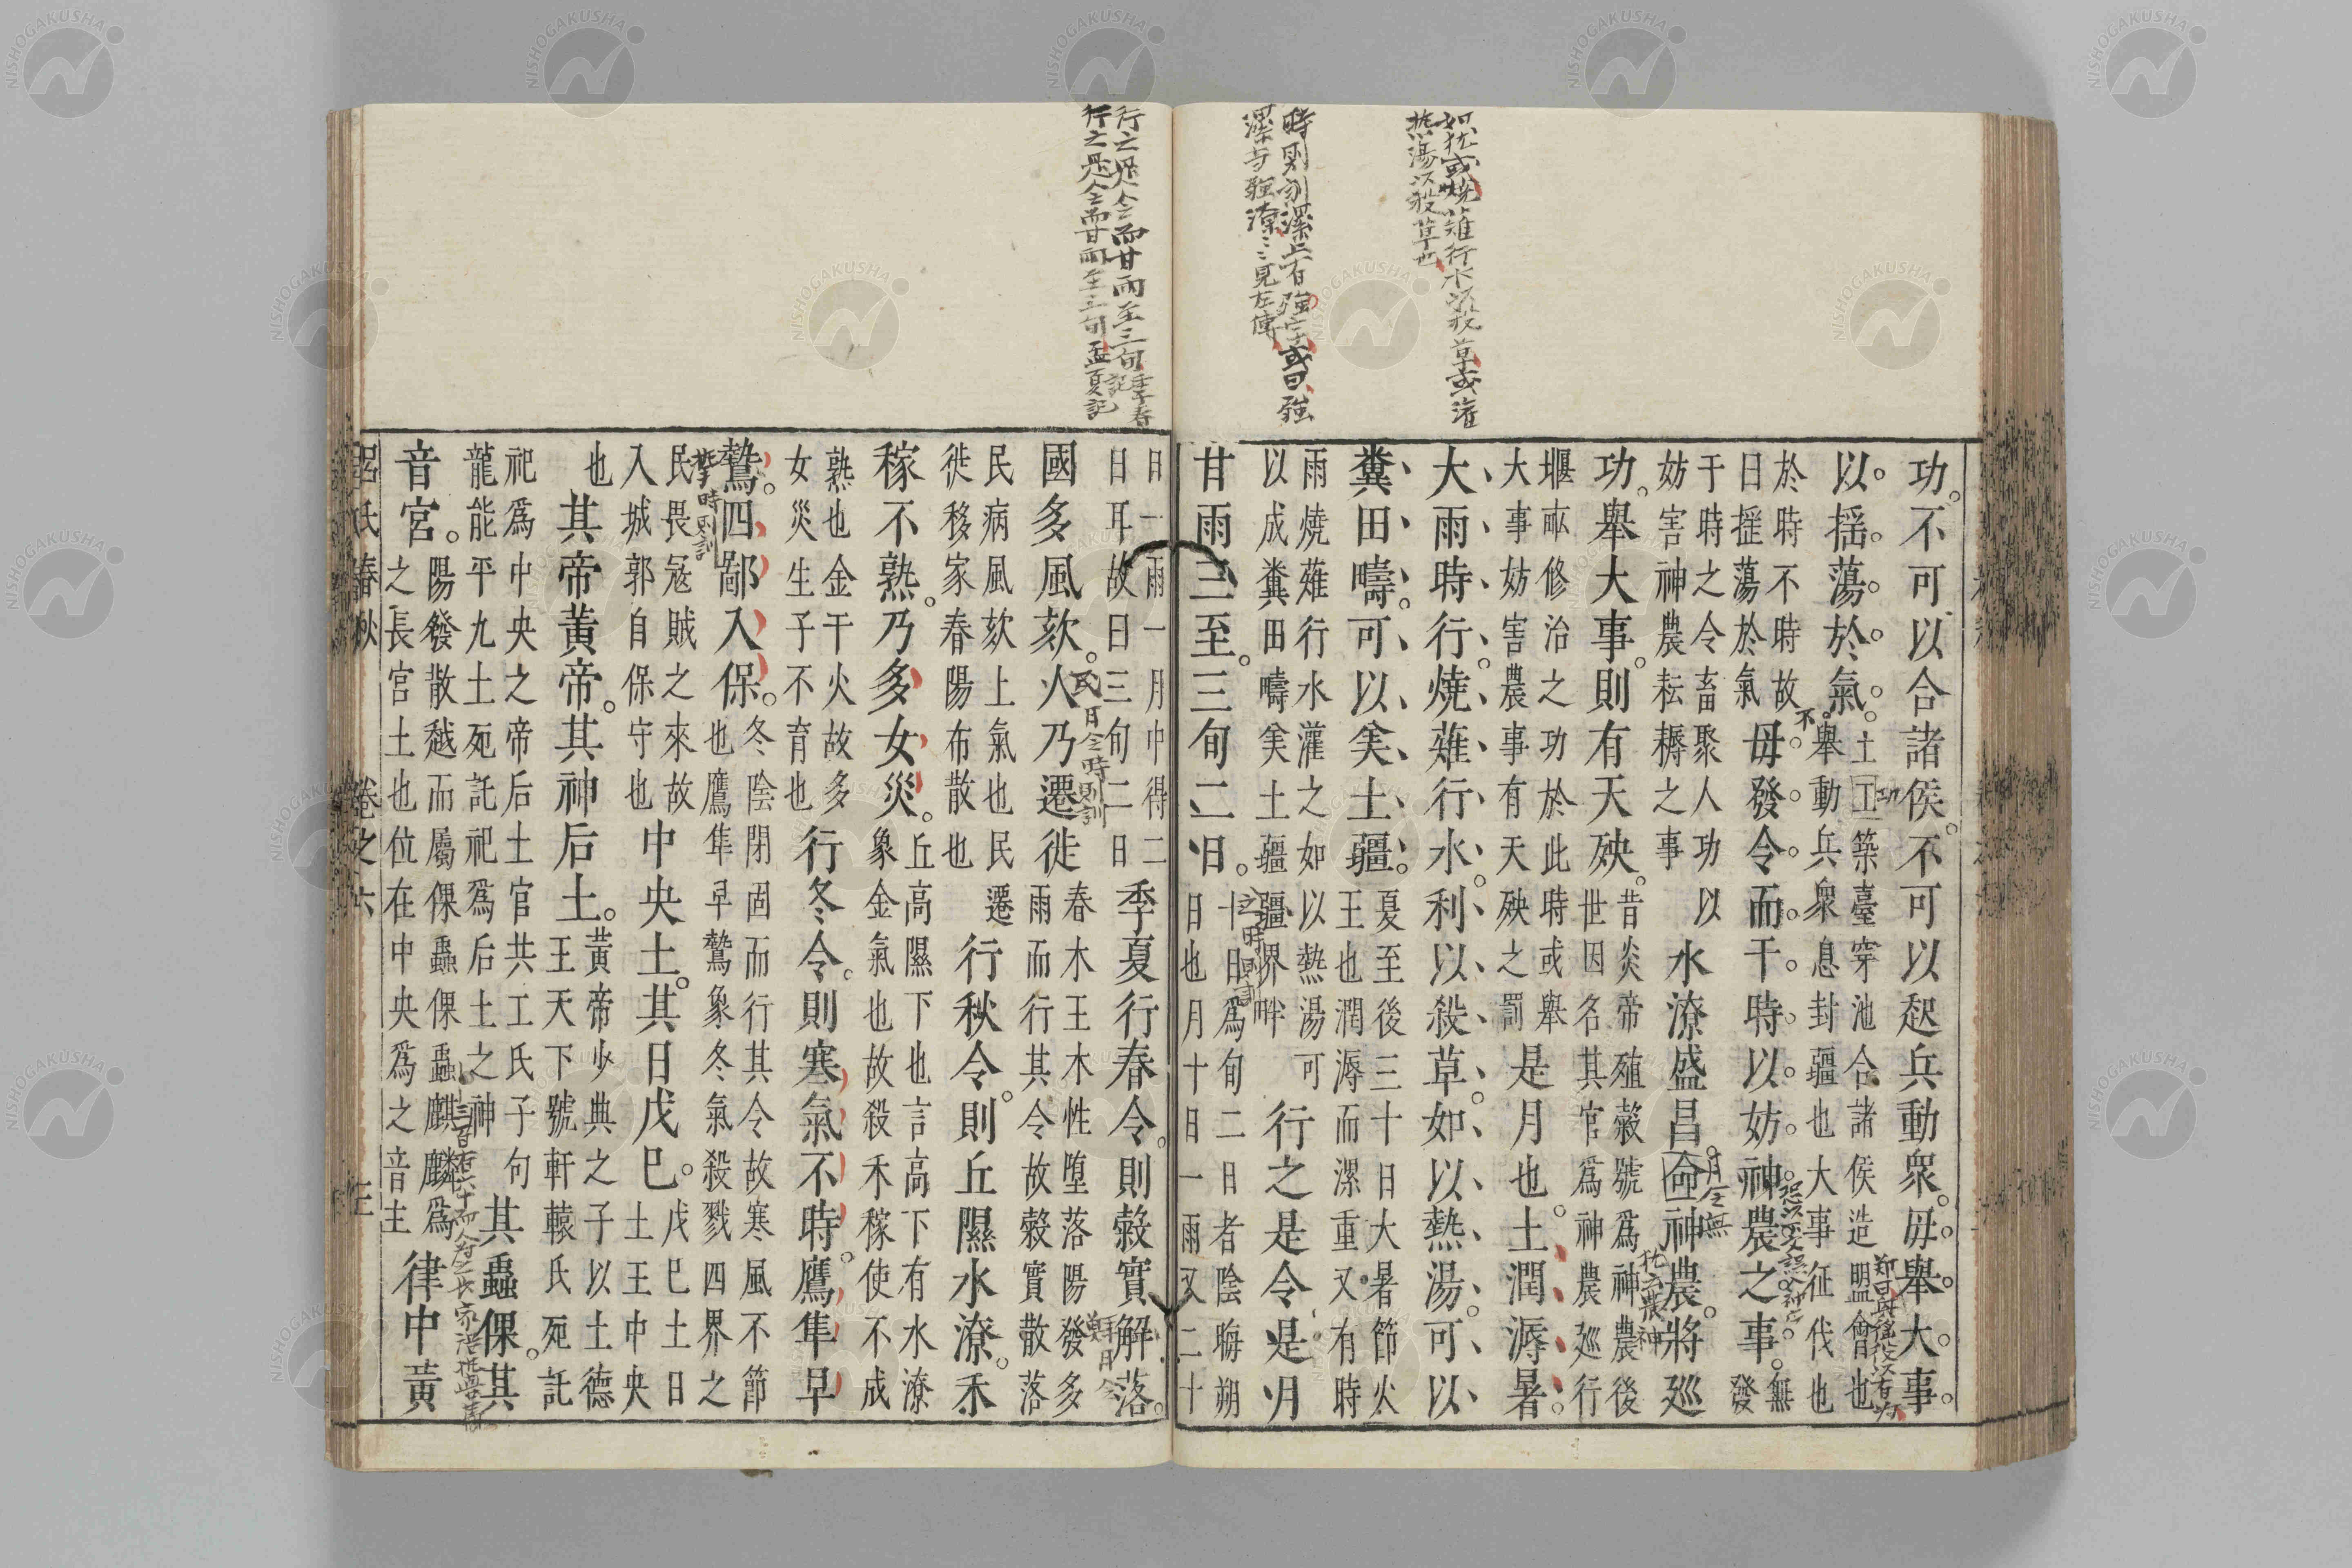 如扰或燒薙行水
時則訓漯上有強字或曰強
漯与強潦〻見左傳
行之是令而甘雨至三旬季春記
行之是令而甘雨至三旬孟夏記
功不可以合諸侯不可以起兵動衆毋舉大事
以搖蕩於氣
土工築臺穿池合諸侯造盟會也
舉動兵衆息封疆也大事征伐也
於時不時故
日搖蕩於氣
毋發令而干時以妨神農之事
無
發
于時之令畜聚人功以
妨害神農耘耨之事
水潦盛昌命神農將巡
月令無
功舉大事則有天殃
昔炎帝殖穀號爲神農後
世因名其官爲神農巡行
堰畝修治之功於此時或舉
大事妨害農事有天殃之罰
是月也土潤溽暑
大雨時行燒薙行水利以殺草如以熱湯可以
糞田疇可以美土疆
夏至後三十日大暑節火
王也潤溽而漯重又有時
雨燒薙行水灌之如以熱湯可
以成糞田疇美土疆疆界畔
行之是令是月
甘雨三至三旬二日
十日爲旬二日者陰晦朔
日也月十日一雨又二十
日一雨一月中得二
日耳故曰三旬二日
季夏行春令則穀實解落
國多風欬人乃遷徙
民月令時則訓
春木王木性墮落陽發多
雨而行其令故穀實散落
民病風欬上氣也民遷
徙移家春陽布散也
行秋令則丘隰水潦禾
稼不熟乃多女災
丘高隰下也言高下有水潦
象金氣也故殺禾稼使不成
熟也金干火故多
女災生子不育也
行冬令則寒氣不時鷹隼早
鷙四鄙入保
摯時則訓
冬陰閉固而行其令故寒風不節
也鷹隼早鷙象冬氣殺戮四界之
民畏寇賊之來故
入城郭自保守也
中央土其日戊巳
戊巳土日
土王中央
也
其帝黃帝其神后土
黃帝少典之子以土德
王天下號軒轅氏死託
祀爲中央之帝后土官共工氏子句
龍能平九土死託祀爲后土之神
其蟲倮其
音宮
陽發散越而屬倮蟲倮蟲麒麟爲
之長宮土也位在中央爲之音主
律中黃
呂氏春秋 卷之六 三